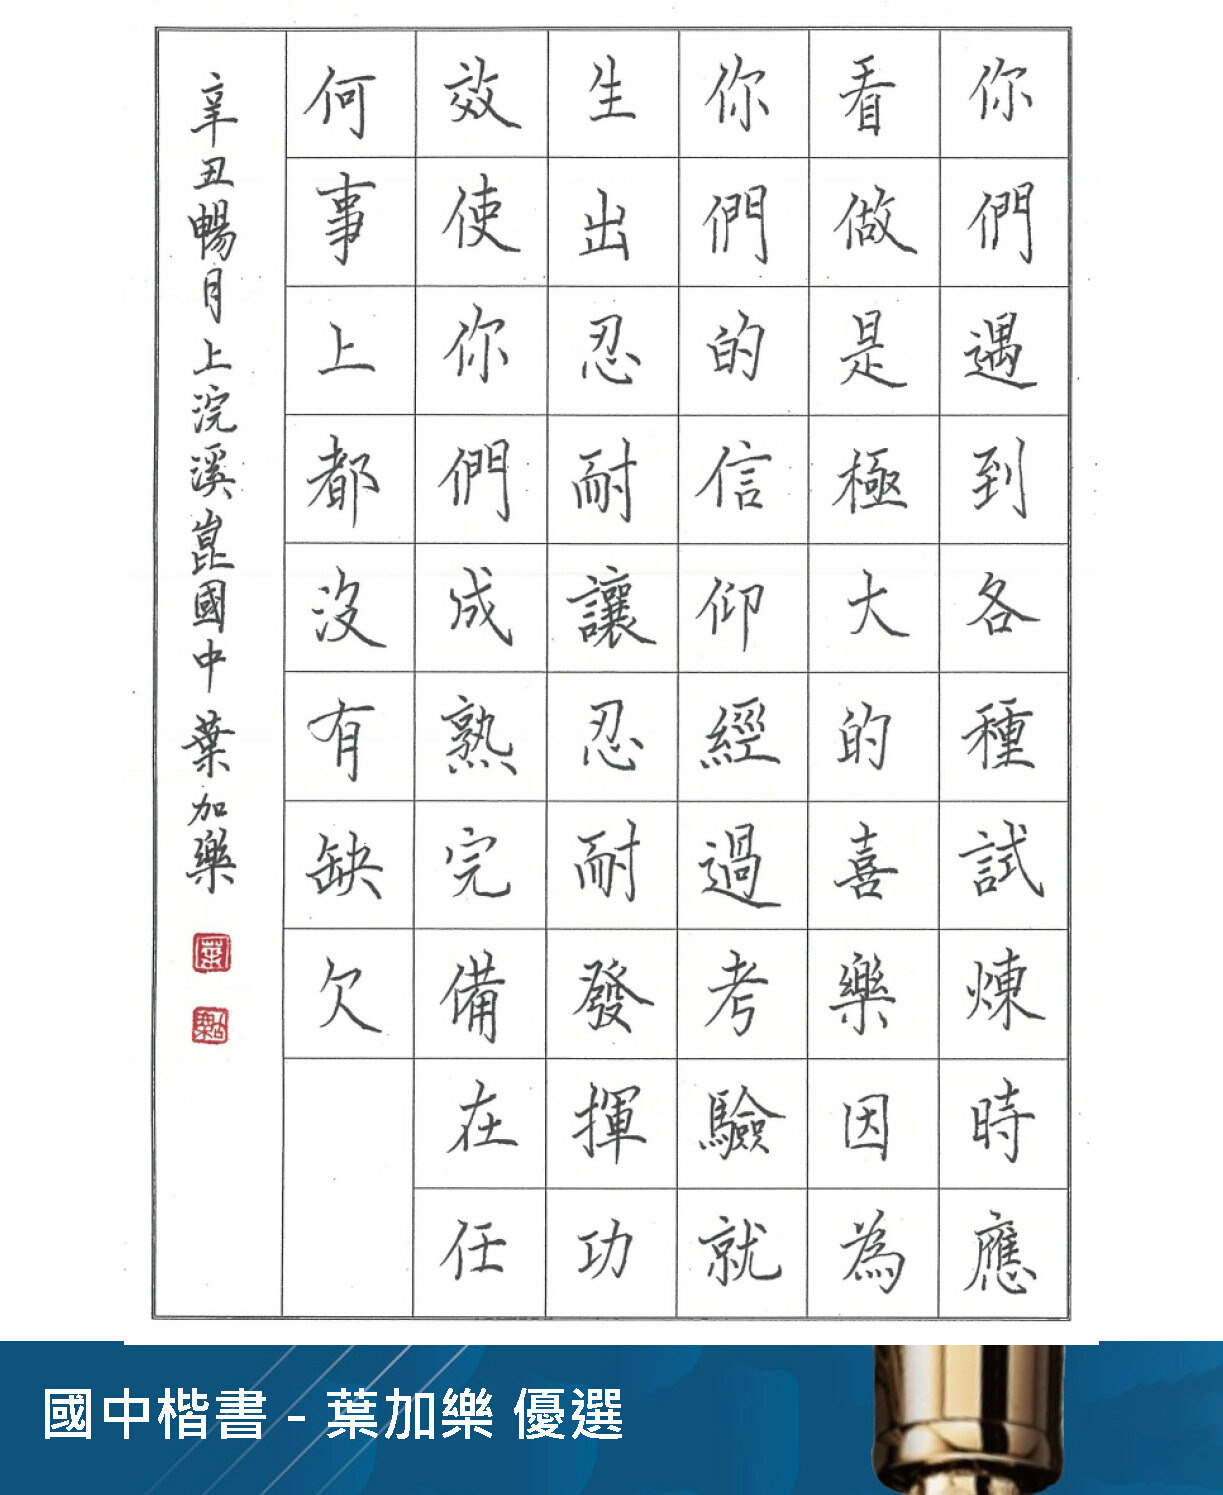 你們遇到各種試煉時應
看做是極大的喜樂因為
你們的信仰經過考驗就
生出忍耐讓忍耐發揮功
效使你們成熟完備在任
何事上都沒有缺欠
辛丑暢月上浣溪崑國中 葉加樂
國中楷書 - 葉加樂 優選